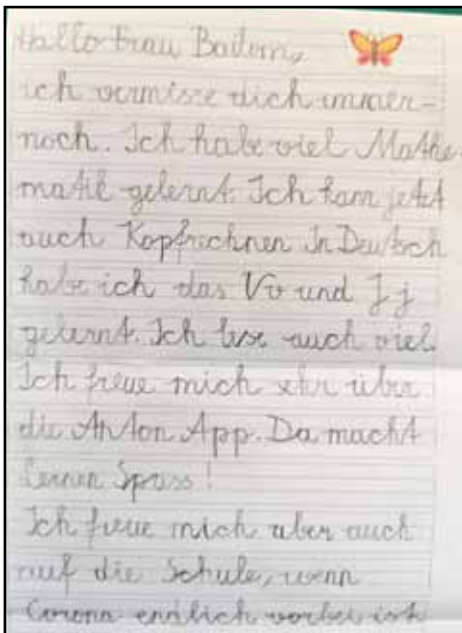 Hallo Frau Bailom,
ich vermisse dich immer-
noch. Ich habe viel Mathe-
matik gelernt. Ich kann jetzt
auch Kopfrechnen In Deutsch
habe ich das Vv und Jj
gelernt. Ich lese auch viel.
Ich freue mich sehr über
die Anton App. Da macht
lernen Spass!
Ich freue mich aber auch
auf die Schule, wenn
Corona endlich vorbei ist